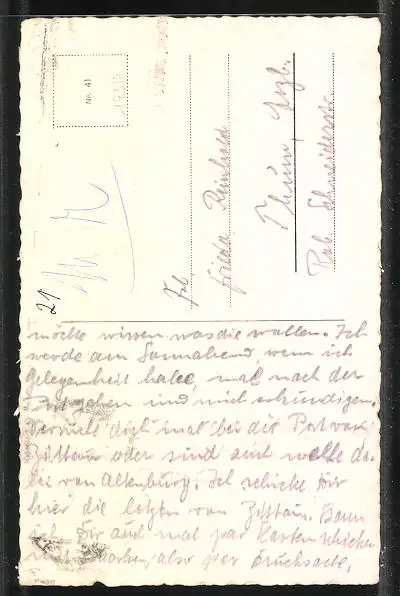 Nr. 41
21
Frl.
Frieda Reinhold
Thum, Erzgb.
Rob. Schneiderstr.
möchte wissen was die wollen. Ich
werde am Sonnabend, wenn ich
Gelegenheit habe, mal nach der
Post gehen und mich erkundigen.
Versuch doch mal bei der Post von
Zittau oder sind auch welle da-
bei von Altenburg. Ich schicke Dir
hier die letzten von Zittau. Kann
ich Dir auch mal par Karten schicken
also per Drucksache,